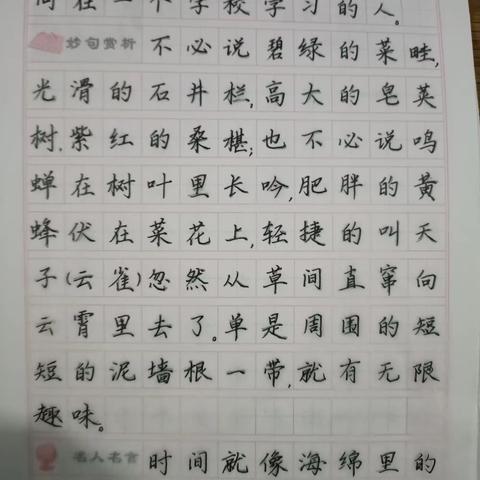 间在一个学校学习的人。
妙句赏析 不必说碧绿的菜畦,
光滑的石井栏,高大的皂荚
树,紫红的桑椹;也不必说鸣
蝉在树叶里长吟,肥胖的黄
蜂伏在菜花上,轻捷的叫天
子(云雀)忽然从草间直窜向
云霄里去了。单是周围的短
短的泥墙根一带,就有无限
趣味。
名人名言 时间就像海绵里的